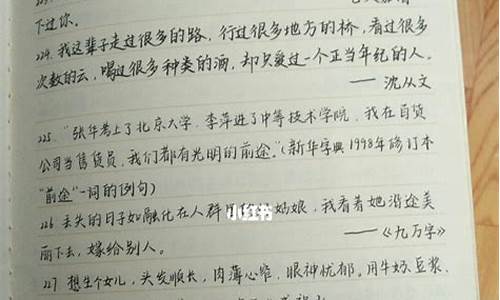 下过你。
224. 我这辈子走过很多的路，行过很多地方的桥，看过很多
次数的云，喝过很多种类的酒，却只爱过一个正当年纪的人。
——沈从文
225. "张华考上了北京大学，李萍进了中等技术学院，我在百货
公司当售货员，我们都有光明的前途。"（新华字典1998年修订本
"前途"一词的例句）
226 丢失的日子如融化在人群里的姑娘，我看着她沿途美
小红书
丽下去，嫁给别人。
——《九万字》
227 想生个女儿，头发顺长，肉薄心细，眼神忧郁。用牛奶豆浆、